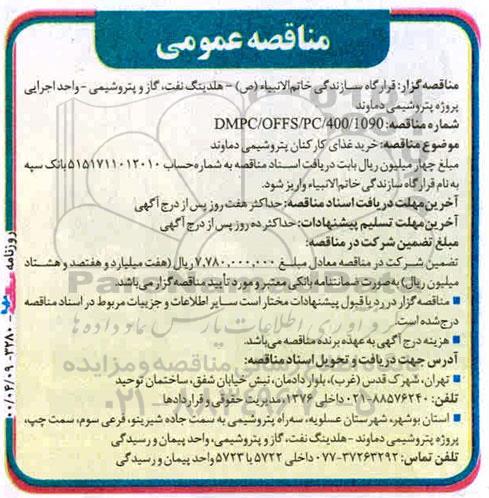 مناقصه عمومی
مناقصه گزار: قرارگاه سازندگی خاتم الانبیاء (ص) - هلدینگ نفت، گاز و پتروشیمی - واحد اجرایی
پروژه پتروشیمی دماوند
شماره مناقصه: DMPC/OFFS/PC/400/1090
موضوع مناقصه: خرید غذای کارکنان پتروشیمی دماوند
مبلغ چهار میلیون ریال بابت دریافت اسناد مناقصه به شماره حساب ۵۱۵۱۷۱۱۰۱۲۰۱۰ بانک سپه
به نام قرارگاه سازندگی خاتم الانبیاء واریز شود.
آخرین مهلت دریافت اسناد مناقصه: حداکثر هفت روز پس از درج آگهی
آخرین مهلت تسلیم پیشنهادات: حداکثر ده روز پس از درج آگهی
مبلغ تضمین شرکت در مناقصه:
تضمین شرکت در مناقصه معادل مبلغ ۷,۷۸۰,۰۰۰,۰۰۰ ریال (هفت میلیارد و هفتصد و هشتاد
میلیون ریال) به صورت ضمانتنامه بانکی معتبر و مورد تأیید مناقصه گزار می‌باشد.
■ مناقصه گزار در رد یا قبول پیشنهادات مختار است سایر اطلاعات و جزییات مربوط در اسناد مناقصه
درج شده است.
■ هزینه درج آگهی به عهده برنده مناقصه می‌باشد.
آدرس جهت دریافت و تحویل اسناد مناقصه:
■ تهران، شهرک قدس (غرب)، بلوار دادمان، نبش خیابان شفق، ساختمان توحید
تلفن: ۸۸۵۷۶۲۴۰-۰۲۱ داخلی ۱۳۷۶، مدیریت حقوقی و قراردادها
■ استان بوشهر، شهرستان عسلویه، سه‌راه پتروشیمی به سمت جاده شیرینو، فرعی سوم، سمت چپ،
پروژه پتروشیمی دماوند - هلدینگ نفت، گاز و پتروشیمی، واحد پیمان و رسیدگی
تلفن تماس: ۳۷۲۶۳۲۹۲-۰۷۷ داخلی ۵۷۲۲ یا ۵۷۲۳ واحد پیمان و رسیدگی
روزنامه
۰۰/۰۴/۰۹ - ۳۲۸۰